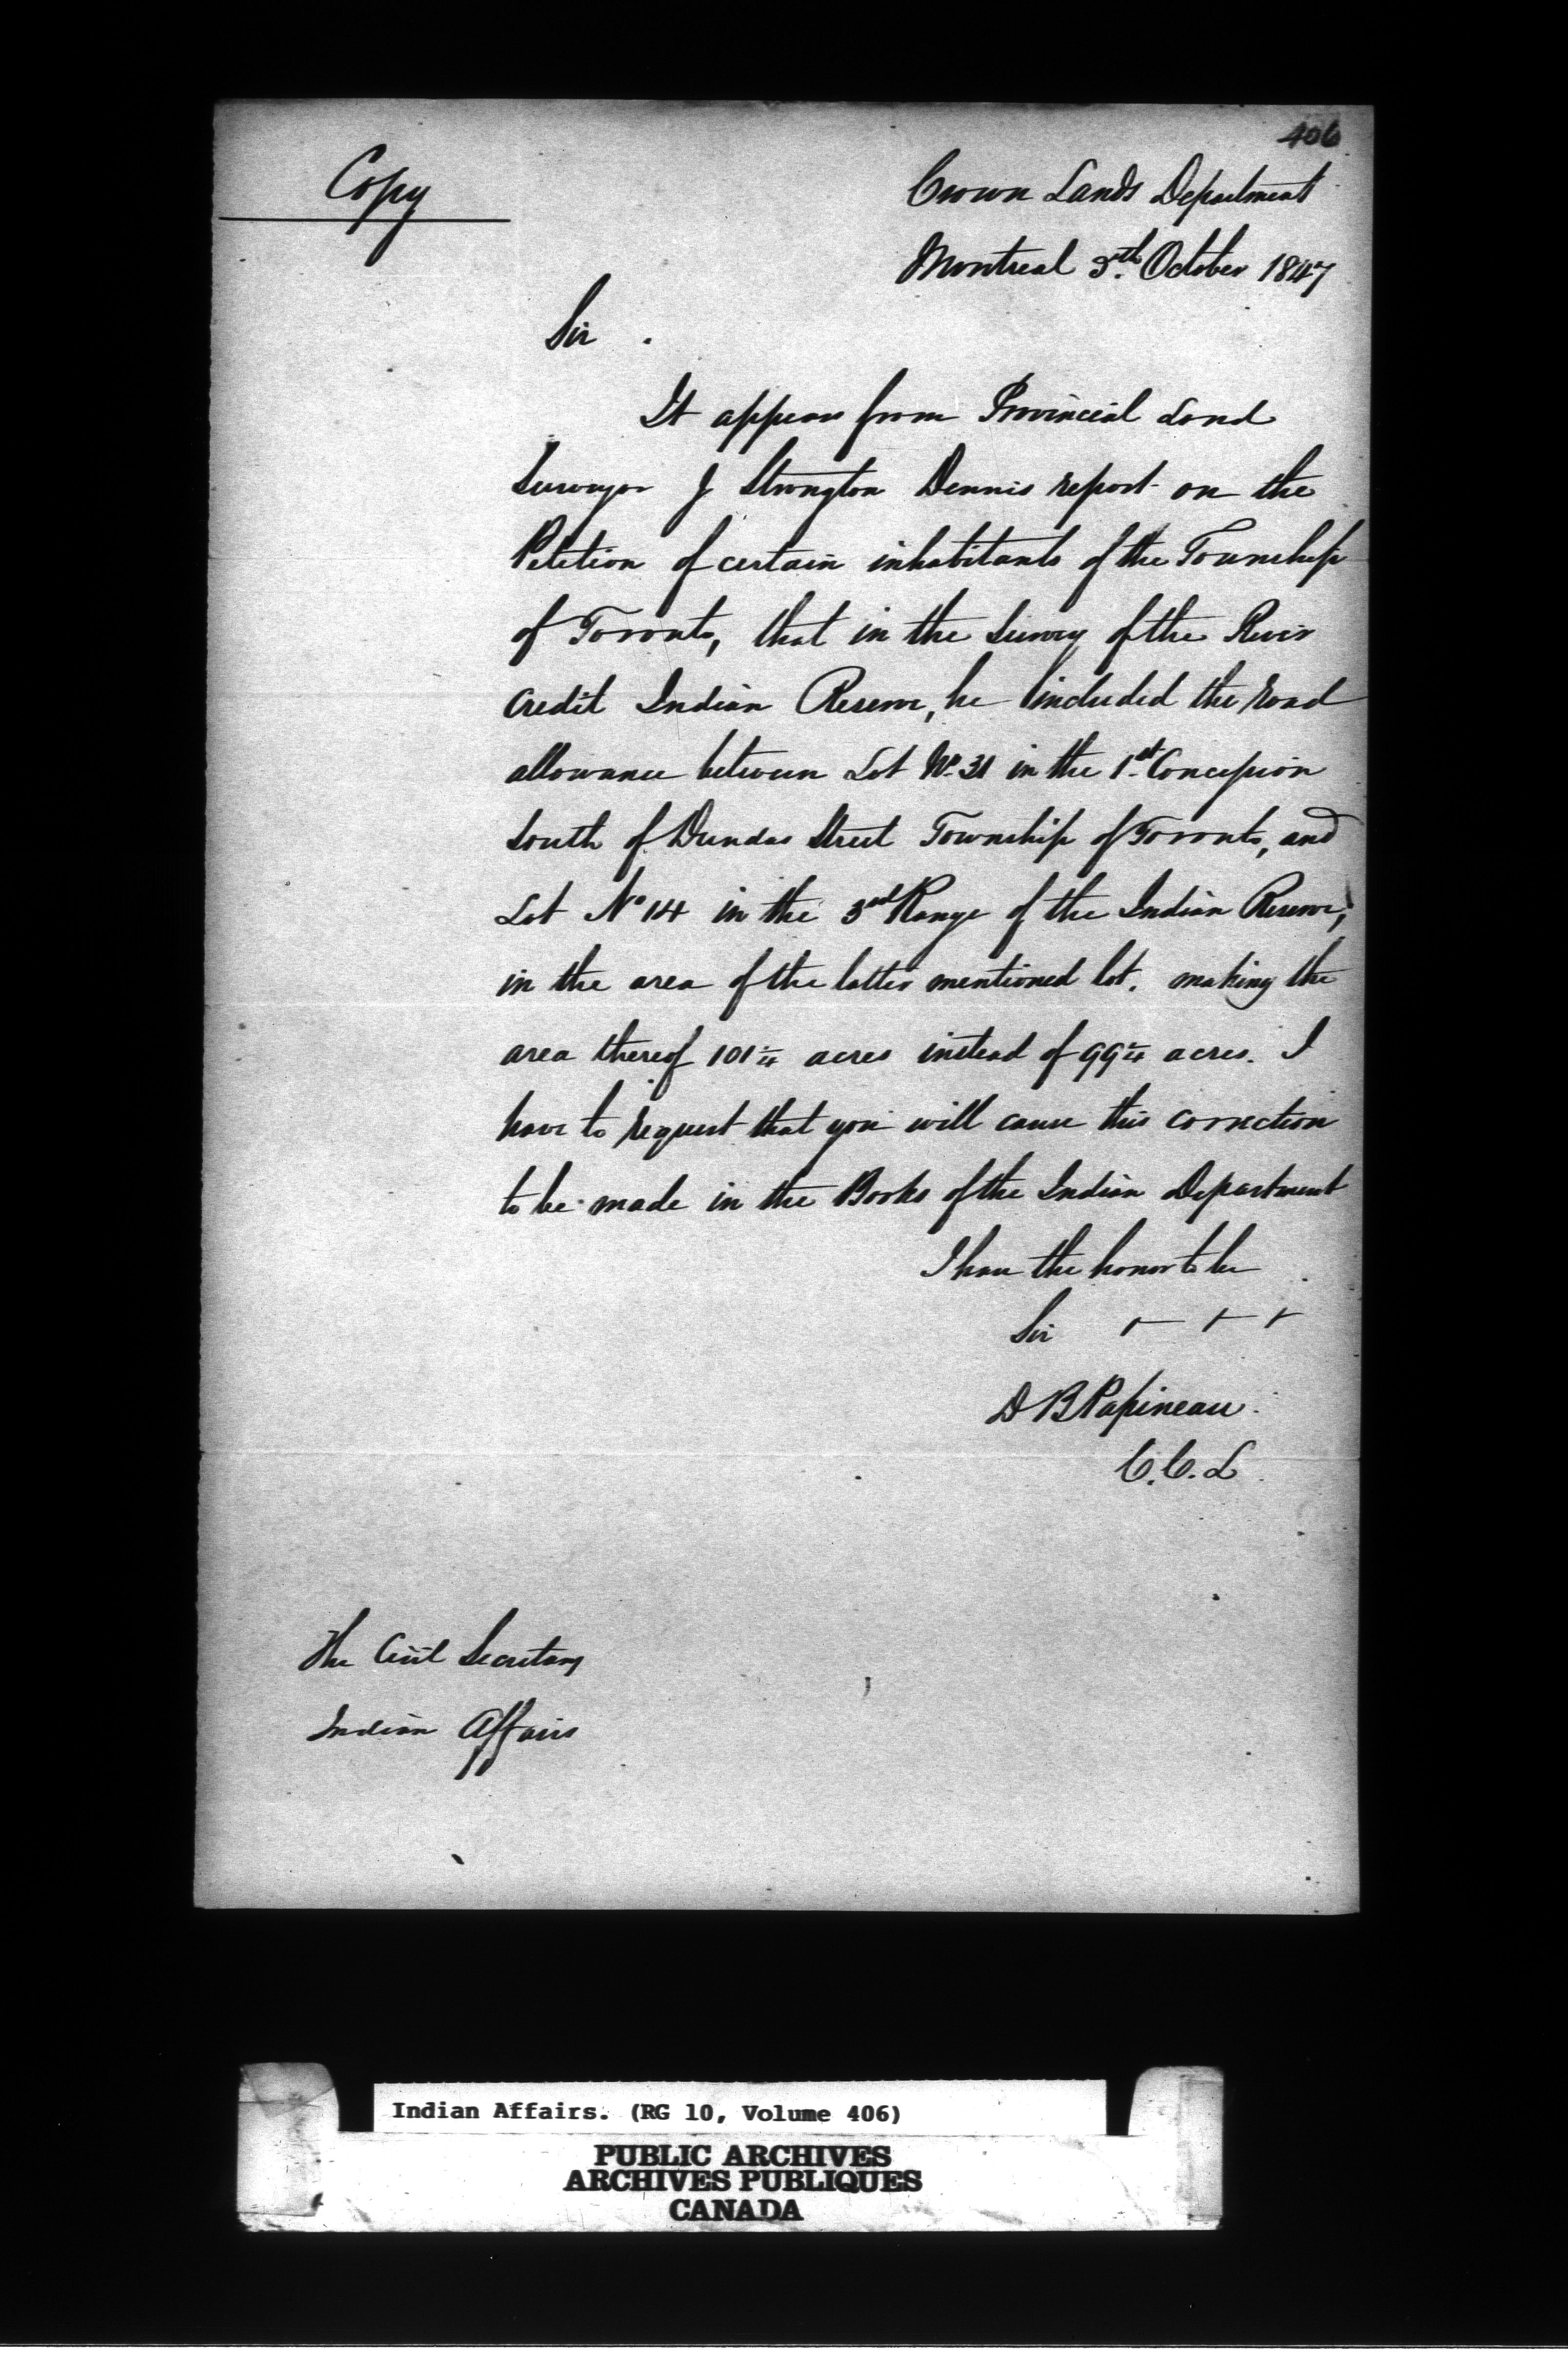 406
Copy
Crown Lands Department
Montreal 5th October 1847
Sir
It appears from Provincial Land
Surveyor J Stoughton Dennis report on the
Petition of certain inhabitants of the Township
of Toronto, that in the Survey of the River
Credit Indian Reserve, he included the road
allowance between Lot No 31 in the 1st Concession
South of Dundas Street Township of Toronto, and
Lot No 14 in the 3rd Range of the Indian Reserve,
in the area of the latter mentioned lot. making the
area thereof 101 1/4 acres instead of 99 1/4 acres. I
have to request that you will cause this correction
to be made in the Books of the Indian Department
I have the honor to be
Sir
D B Papineau
C.C.L
The Civil Secretary
Indian Affairs
Indian Affairs. (RG 10, Volume 406)
PUBLIC ARCHIVES
ARCHIVES PUBLIQUES
CANADA